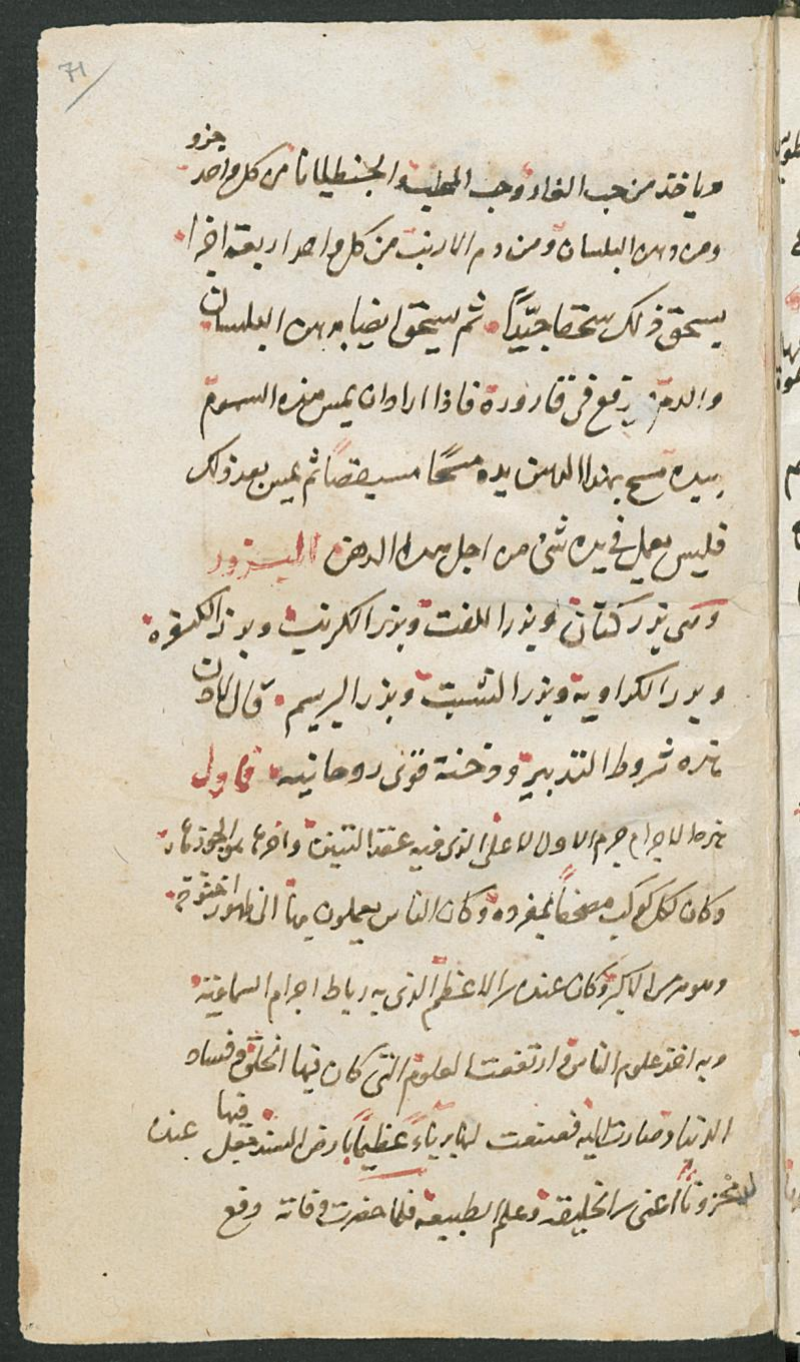 71
وياخذ من حب الغار وحب المحلب والجنطيانا من كل واحد جزو
ومن دهن البلسان ومن دم الارنب من كل واحد اربعة اجزا
يسحق ذلك سحقا جيّداً ثم يسحق ايضا بدهن البلسان
والدم يرفع في قارورة فاذا اراد ان يمس هذه السموم
بيده مسح بهذا الدهن يده مسحًا مستقصًا ثم يمس بعد ذلك
فليس يعمل في يده شئ من اجل هذا الدهن البزور
وهى بزر كتان وبزر اللفت وبزر الكرنب وبزر الكسفره
وبزر الكراوية وبزر الشبت وبزر البرسيم قال
هذه شروط التدبير ودخنة قوى روحانيه فاول
الاجرام جرم الاول الاعلى الذى فيه عقد التنين واخرها
وكان لكل كوكب مصحفاً بمفرده وكان الناس يعملون بها الى ظهور
وهو هرمس الاكبر وكان عنده سر الاعظم الذى به رباط اجرام السماوية
وبه اخذ علوم الناس وارتفعت العلوم التى كان فيها الخلق وفساد
الدنيا وصارت اليه فصنعت لها بربآءً عظيماً بارض السند فجعل فيها عنده
مخزوناً اعنى سر الخليقة وعلم الطبيعه فلما حضرت وفاته وقع